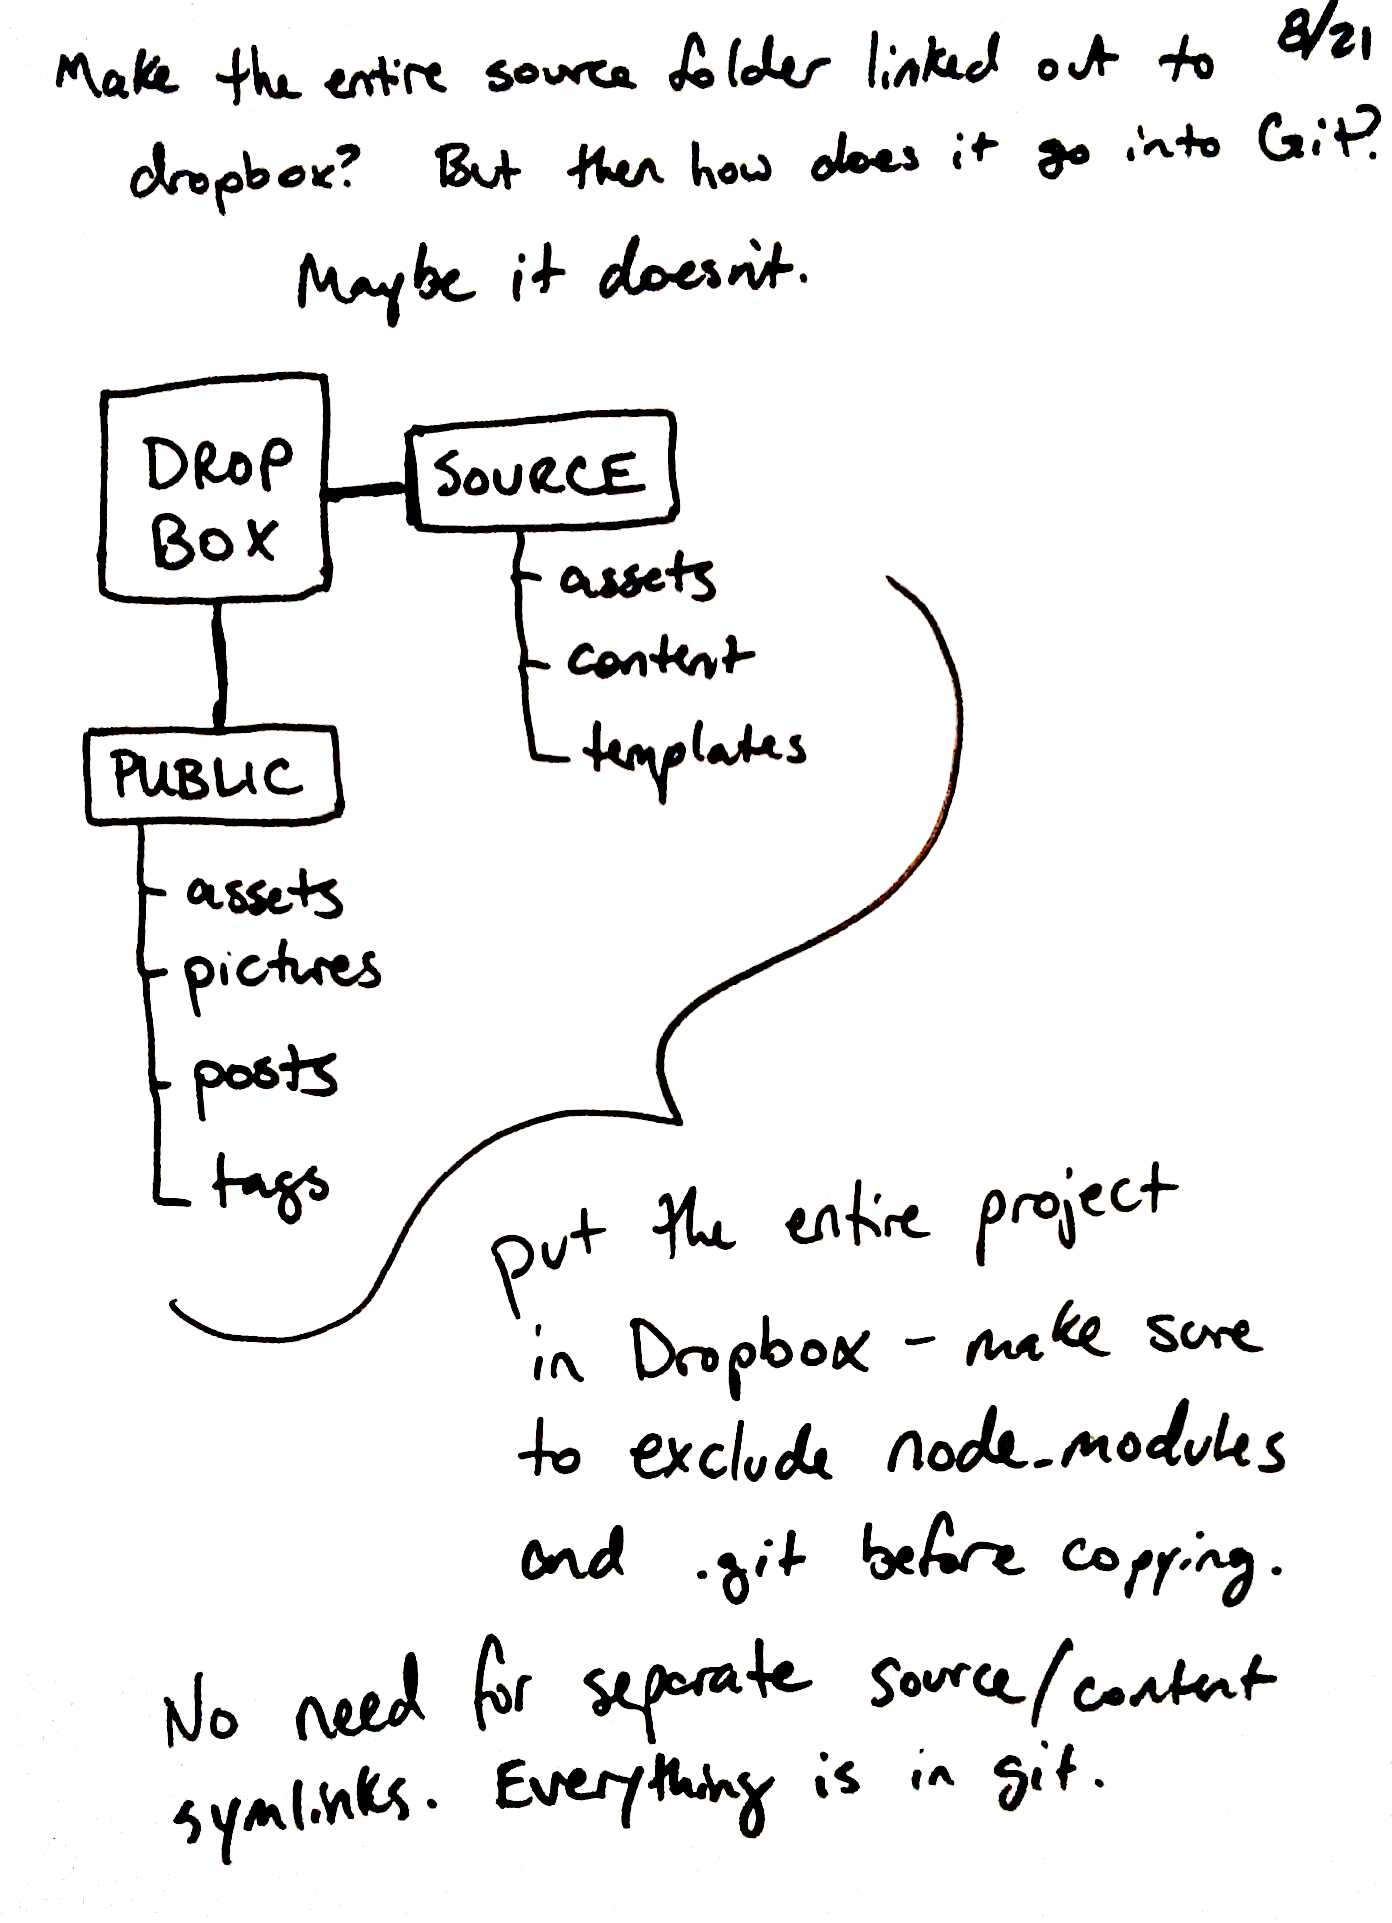 8/21
Make the entire source folder linked out to
dropbox? But then how does it go into Git?
Maybe it doesn't.
DROP
BOX
SOURCE
assets
content
templates
PUBLIC
assets
pictures
posts
tags
put the entire project
in Dropbox - make sure
to exclude node_modules
and .git before copying.
No need for separate source/content
symlinks. Everything is in git.